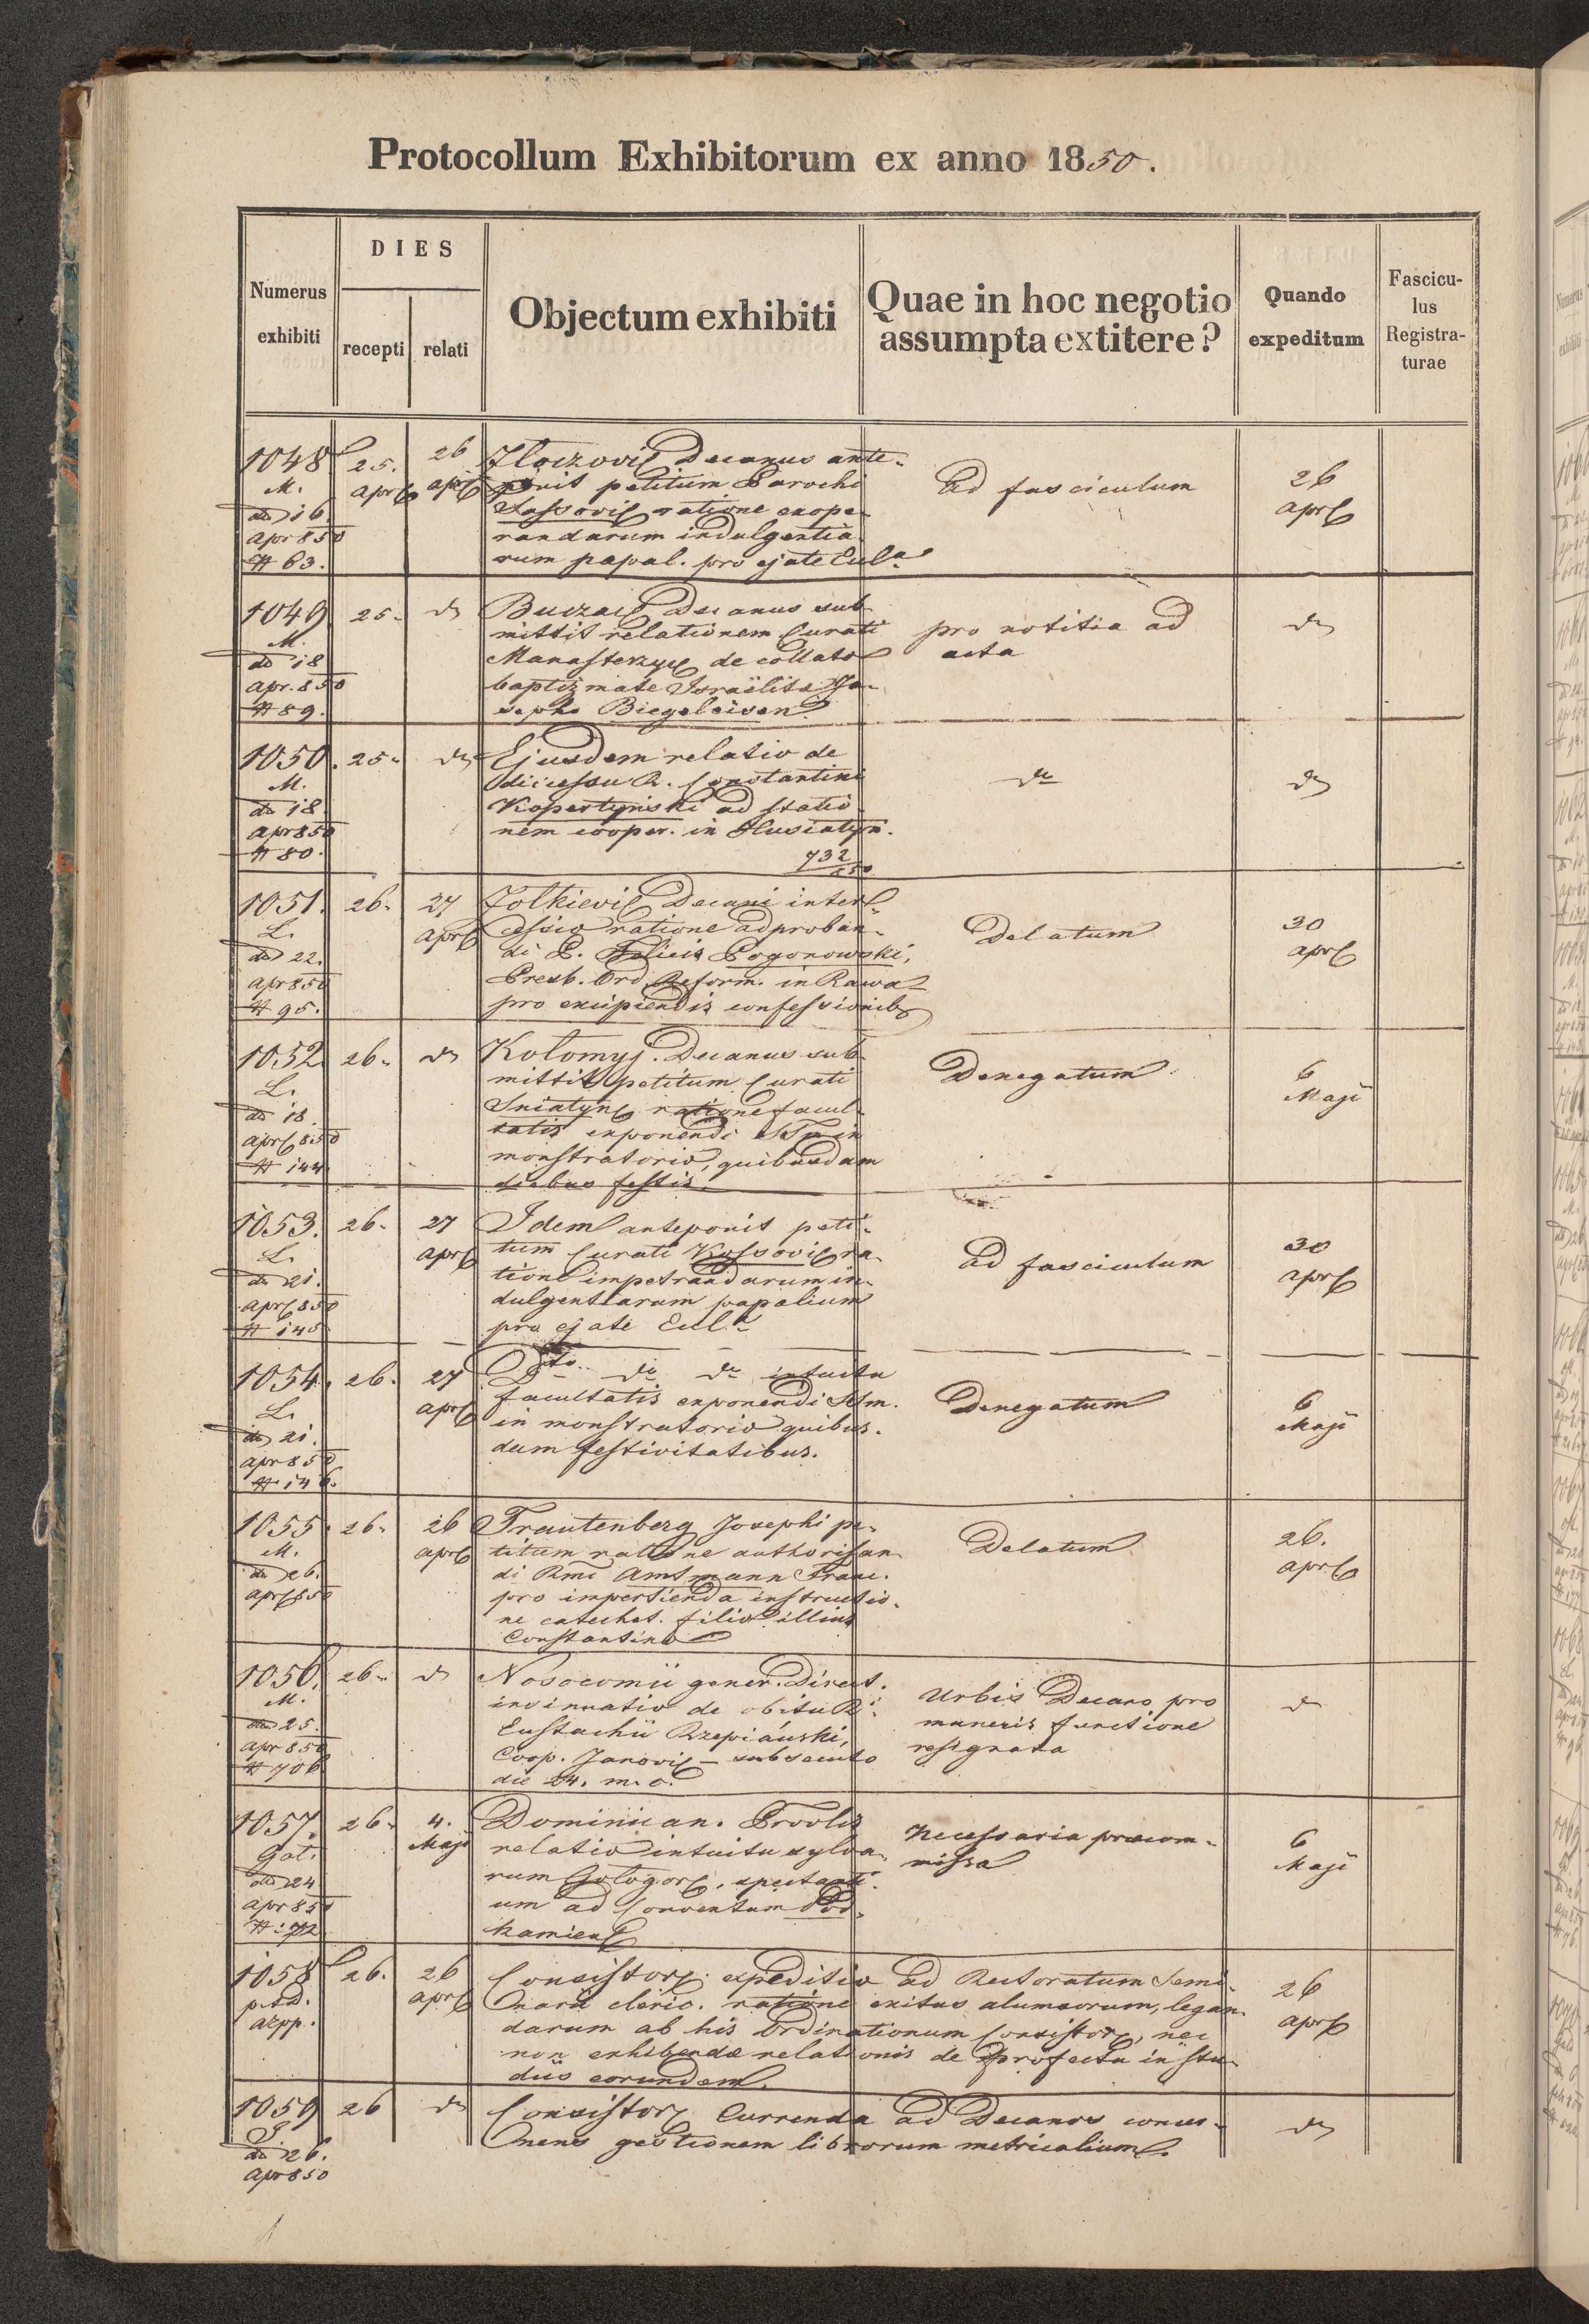 Protocollum Exhibitorum ex anno 1850.
Numerus exhibiti
DIES
recepti
relati
Objectum exhibiti
Quae in hoc negotio
assumpta extitere?
Quando
expeditum
Fascicu-
lus
Registra-
turae
1048
M.
dto 16.
apr 850
# 63.
25.
apr
26
apr
Zloczovi Decanus ante-
ponit petitum Parochi
Sassovi ratione exope-
randarum indulgentia-
rum papal. pro ejate Ecla
ad fasciculum
26
apr
1049
M.
dto 18
apr. 850
# 89.
25.
do
Buczac Decanus sub-
mittit relationem Curati
Manasterzy de collato
baptizmate Israëlitæ Jo-
sepho Biegeleisen
pro notitia ad
acta
do
1050.
M.
dto 18
apr 850
# 80.
25.
do
Ejusdem relatio de
discessu R. Constantini
Kopertynski ad statio-
nem cooper. in Husiatyn.
732
850
do
do
1051.
L.
dto 22.
apr 850
# 95.
26.
27
apr
Zolkievi Decani inter-
cessio ratione adproban-
di P. Felicis Pogorowski,
Presb. Ord. Reform. in Rawa
pro excipiendis confessionib
Delatum
30
apr
1052
L.
dto 18.
apr 850
# 144
26.
do
Kolomyj. Decanus sub-
mittit petitum Curati
Sniatyn ratione facul-
tatis exponendi SSm in
monstratorio, quibusdam
diebus festis.
Denegatum
6
Maji
1053.
L.
dto 21.
apr 850
# 145
26.
27
apr
Idem anteponit peti-
tum Curati Kossovi ra-
tione impetrandarum in-
dulgentiarum papalium
pro ejate Ecla
ad fasciculum
30
apr
1054.
L.
dto 21.
apr 850
# 146.
26.
27
apr
Dto do do intuitu
facultatis exponendi SSm.
in monstratorio quibus-
dam festivitatibus.
Denegatum
6
Maji
1055.
M.
dto 26.
apr 850
26.
26
apr
Trautenberg Josephi pe-
titum ratione authorisan-
di Rmi Amtmann Franc.
pro impertienda instructio-
ne catechet. filio illius
Constantino
Delatum
26.
apr
1056.
M.
dto 25.
apr 850
# 706
26.
do
Nosocomii gener. Direct.
insinuatio de obitu Ri
Eustachii Rzepiański,
Coop. Janovi – subsecuto
die 24. m. c.
Urbis Decano pro
muneris functione
resignata
do
1057.
Gal.
dto 24
apr 850
# 72
26.
4.
Maji
Dominican. Provlis
relatio intuitu sylva-
rum Gologor, spectanti-
um ad Conventum Pod-
kamien
Necessaria præcom-
missa
6
Maji
1058
p. sd.
app.
26.
26
apr
Consistor. expeditio ad Rectoratum Semi-
narii cleric. ratione exitus alumnorum, legan-
darum ab his Ordinationum Consistor, nec
non exhibendæ relationis de profectu in stu-
diis eorundem.
26
apr
1059
J.
dto 26.
apr 850
26
do
Consistor Currenda ad Decanos concer-
nens gestionem librorum metricalium.
do